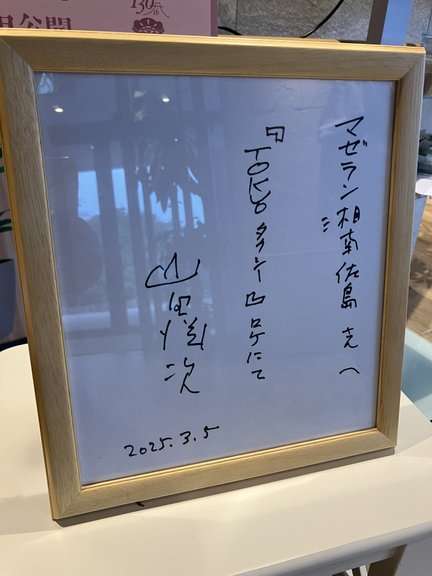 公開
130
マゼラン湘南佐島さんへ
『TOKYOタクシー』ロケにて
山田洋次
2025.3.5